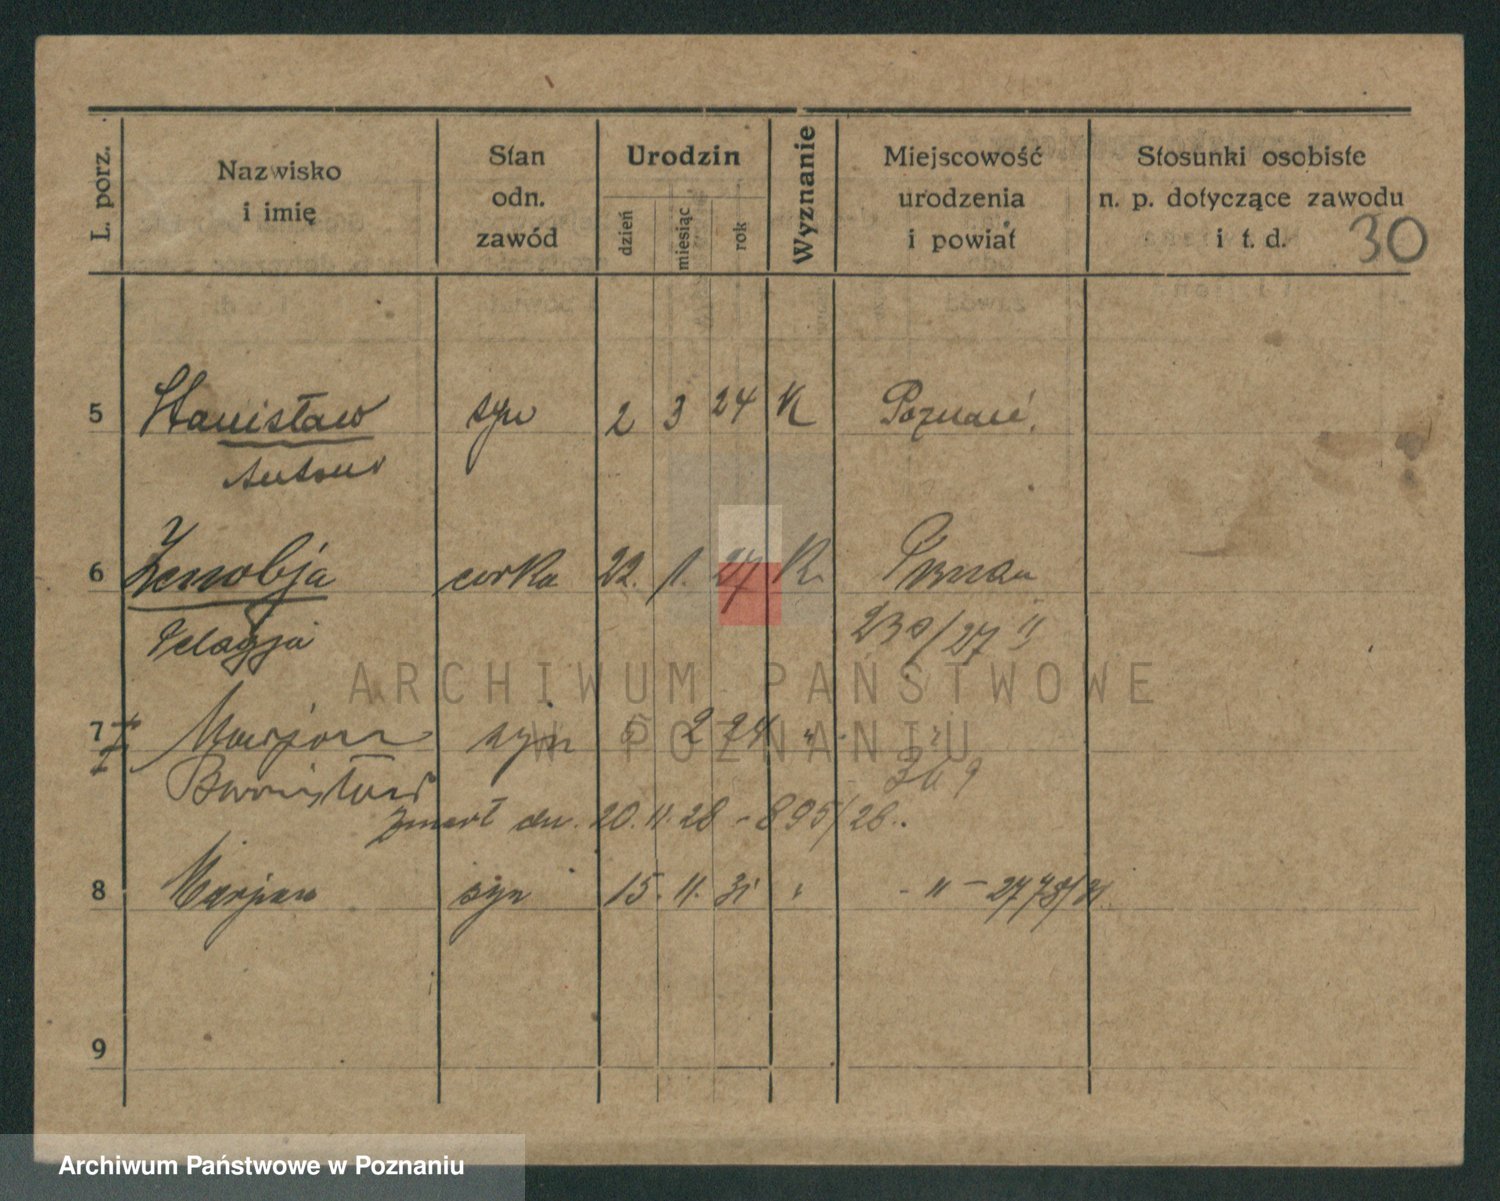 L. porz.
Nazwisko
i imię
Stan
odn.
zawód
Urodzin
dzień
miesiąc
rok
Wyznanie
Miejscowość
urodzenia
i powiat
Stosunki osobiste
n. p. dotyczące zawodu
i t. d.
30
5 Stanisław syn 2 3 24 K Poznań
Antoni
6 Zenobja corka 22. 1. 27 K. Poznan
Pelagja 230/27 II
7 Marjan syn 2 "
Bronisław 369
zmarł dn. 20.11.28 - 895/28.
8 Marjan syn 15. 11. 31 " - " -
9
ARCHIWUM PAŃSTWOWE
W POZNANIU
Archiwum Państwowe w Poznaniu